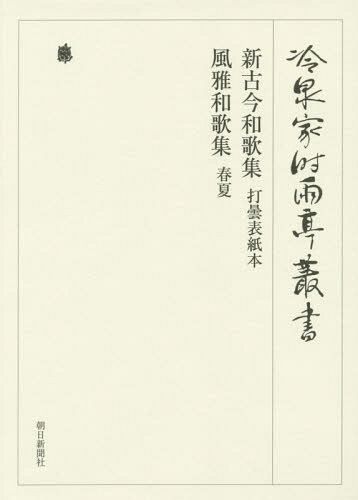 冷泉家時雨亭叢書
新古今和歌集 打曇表紙本
風雅和歌集 春夏
朝日新聞社